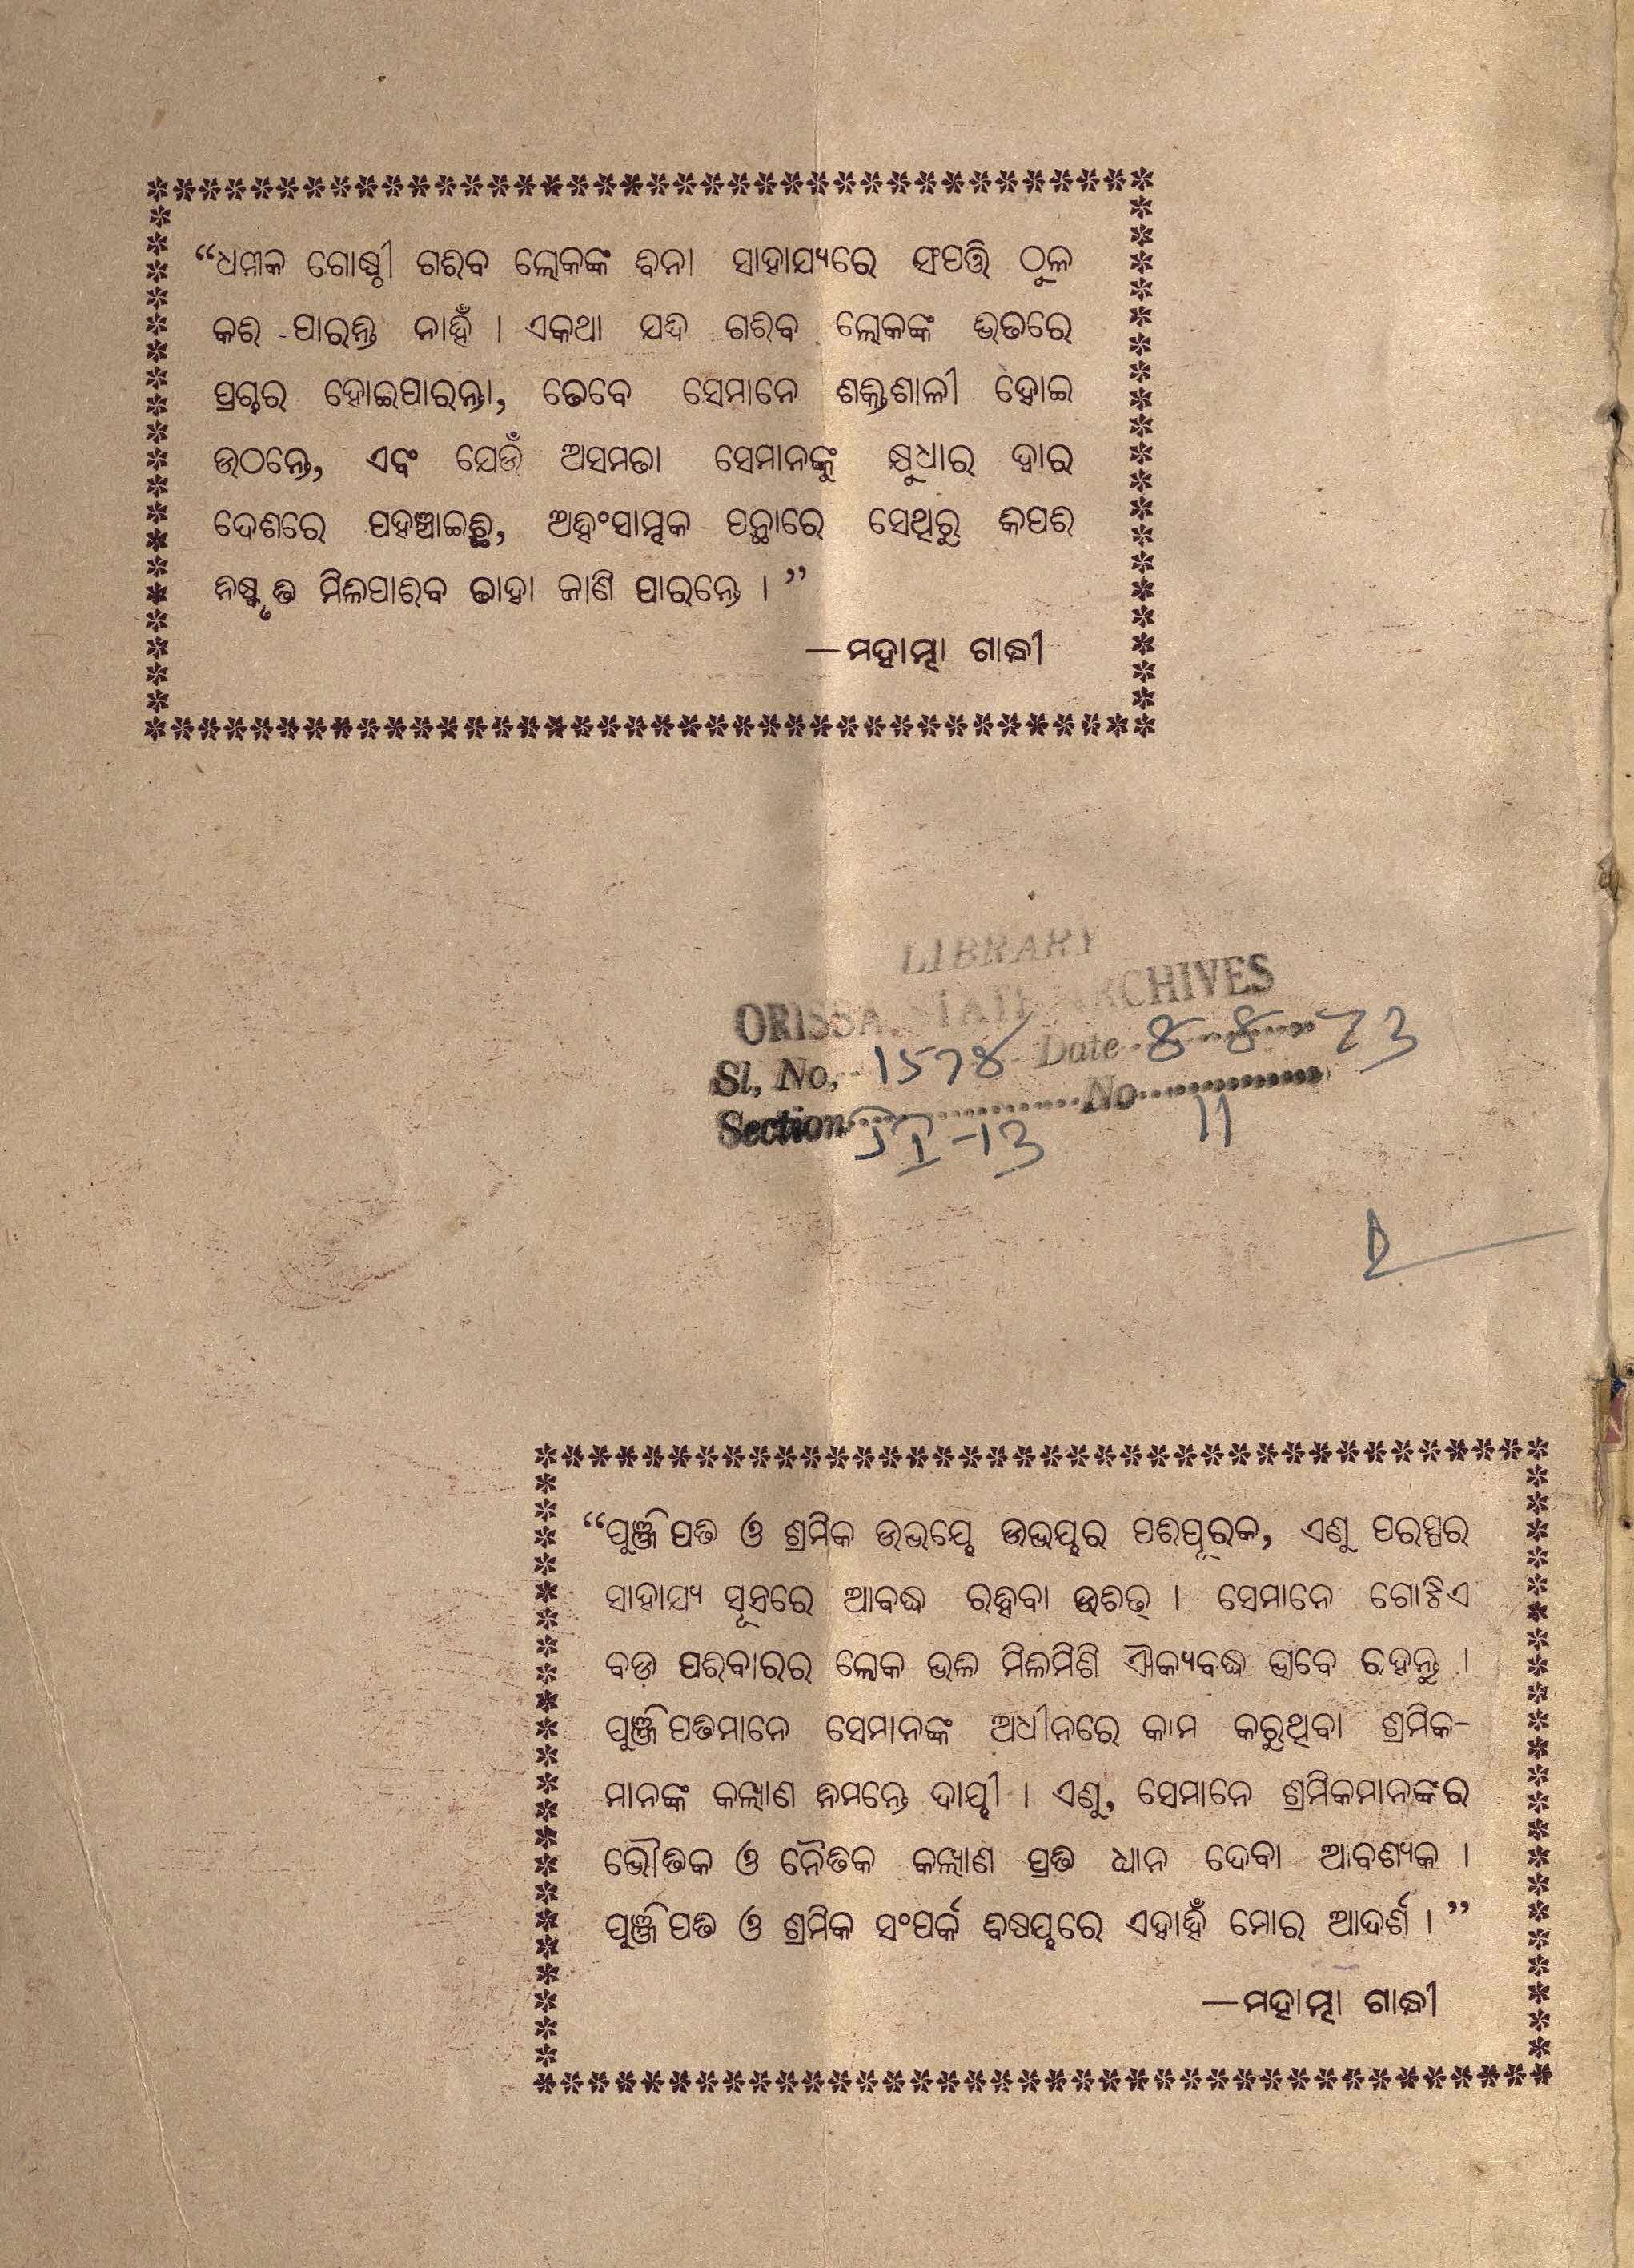 “ଧନୀକ ଗୋଷ୍ଠୀ ଗରିବ ଲୋକଙ୍କ ବିନା ସାହାଯ୍ୟରେ ସଂପତ୍ତି ଠୁଳ
କରି ପାରନ୍ତି ନାହିଁ । ଏକଥା ଯଦି ଗରିବ ଲୋକଙ୍କ ଭିତରେ
ପ୍ରଚାର ହୋଇପାରନ୍ତା, ତେବେ ସେମାନେ ଶକ୍ତିଶାଳୀ ହୋଇ
ଉଠନ୍ତେ, ଏବଂ ଯେଉଁ ଅସମତା ସେମାନଙ୍କୁ କ୍ଷୁଧାର ଦ୍ୱାର
ଦେଶରେ ପହଞ୍ଚାଇଛି, ଅହିଂସାତ୍ମକ ପନ୍ଥାରେ ସେଥିରୁ କିପରି
ନିଷ୍କୃତି ମିଳିପାରିବ ତାହା ଜାଣି ପାରନ୍ତେ । ”
—ମହାତ୍ମା ଗାନ୍ଧୀ
LIBRARY
ORISSA STATE ARCHIVES
Sl. No. 1578 Date 8-8-73
Section No 11
“ପୁଞ୍ଜିପତି ଓ ଶ୍ରମିକ ଉଭୟେ ଉଭୟର ପରିପୂରକ, ଏଣୁ ପରସ୍ପର
ସାହାଯ୍ୟ ସୂତ୍ରରେ ଆବଦ୍ଧ ରହିବା ଉଚିତ୍ । ସେମାନେ ଗୋଟିଏ
ବଡ଼ ପରିବାରର ଲୋକ ଭଳି ମିଳିମିଶି ଐକ୍ୟବଦ୍ଧ ଭାବେ ରହନ୍ତୁ ।
ପୁଞ୍ଜିପତିମାନେ ସେମାନଙ୍କ ଅଧୀନରେ କାମ କରୁଥିବା ଶ୍ରମିକ-
ମାନଙ୍କ କଲ୍ୟାଣ ନିମନ୍ତେ ଦାୟୀ । ଏଣୁ, ସେମାନେ ଶ୍ରମିକମାନଙ୍କର
ଭୌତିକ ଓ ନୈତିକ କଲ୍ୟାଣ ପ୍ରତି ଧ୍ୟାନ ଦେବା ଆବଶ୍ୟକ ।
ପୁଞ୍ଜିପତି ଓ ଶ୍ରମିକ ସଂପର୍କ ବିଷୟରେ ଏହାହିଁ ମୋର ଆଦର୍ଶ । ”
—ମହାତ୍ମା ଗାନ୍ଧୀ